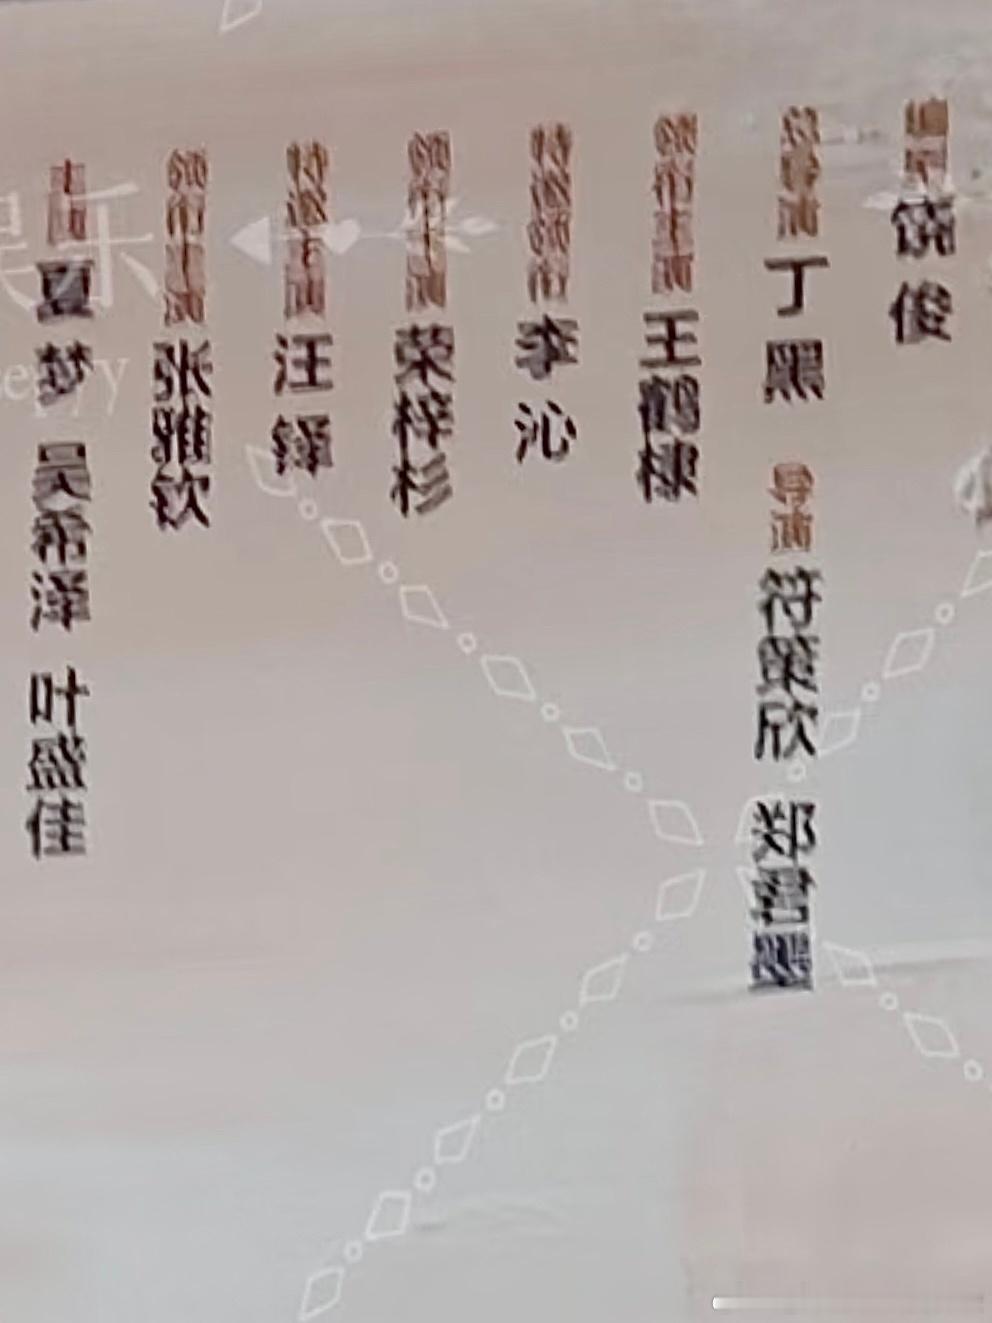 编剧 饶俊
总导演 丁黑 导演 符策欣 郑
领衔主演 王鹤棣
特邀领衔 李沁
领衔主演 荣梓杉
特邀主演 汪铎
领衔主演 张雅钦
主演 夏梦 吴希泽 叶盛佳
娱乐